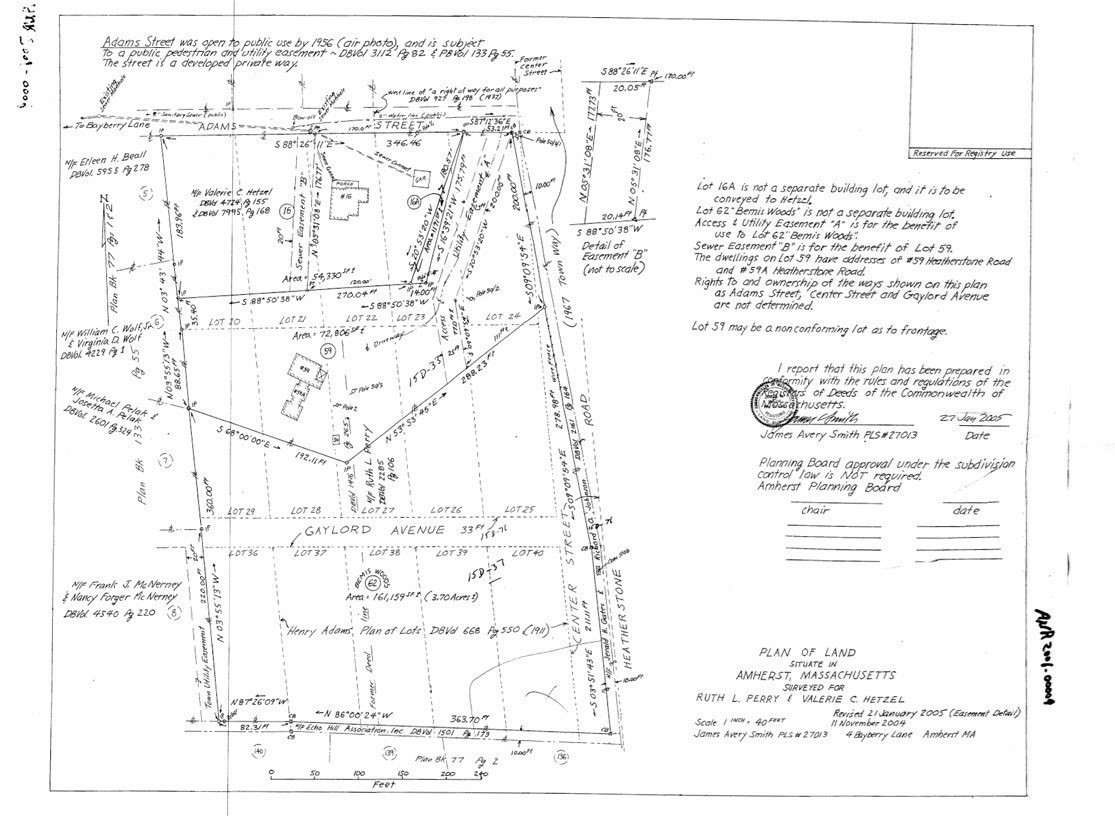 Adams Street was open to public use by 1956 (air photo), and is subject
to a public pedestrian and utility easement ~ DBVol 3112 Pg 82 & PBkVol 133 Pg 55.
The street is a developed private way.
Former
Center
Street
S 88°26'11"E
170.00 FT
20.05 FT
N 05°31'08"E 177.73 FT
20 FT
N 05°31'08"E 176.77 FT
20.14 FT
S 88°50'38"W
Detail of
Easement "B"
(not to scale)
Reserved For Registry Use
West line of "a right of way for all purposes"
DBVol 927 Pg 198 (1977)
To Bayberry Lane
8" Sanitary Sewer (public)
ADAMS STREET
S 88°26'11"E 346.46
S87°12'36"E
53.21 FT
N/F Eileen H. Beall
DBVol. 5955 Pg 278
5
N/F Valerie C. Hetzel
DBVol 4724 Pg 155
& DBVol 7995, Pg 168
16
Sewer Easement "B"
N 05°31'08"E 176.77 FT
#16
CAR
16A
Utility Easement "A"
200.00 FT
S09°09'54"E
10.00 FT
(1967 Town Way)
Plan Bk 77 Pg 172
183.96 FT
N 03°43'44"W
Area = 54,330 SF±
120.00
S 88°50'38"W 270.04 FT
14.00 FT
S 88°50'38"W
35.40
LOT 20
LOT 21
LOT 22
LOT 23
LOT 24
Area = 72,806 SF±
59
Driveway
Access
15D-35
N/F William C. Wolf, Sr.
& Virginia D. Wolf
DBVol 4229 Pg 1
6
N 03°55'13"W
88.65 FT
N/F Michael Pelak &
Josetta A. Pelak
DBVol 2601 Pg 329
Plan Bk 133 Pg 55
7
S 68°00'00"E
192.11 FT
N 53°55'45"E 288.23 FT
111 FT
N/F Ruth L. Perry
DBVol 2285
Pg 106
DBVol 1416 Pg 265
278.98 FT
S09°09'54"E
ROAD
360.00 FT
LOT 29
LOT 28
LOT 27
LOT 26
LOT 25
GAYLORD AVENUE 33 FT
15D-76
LOT 36
LOT 37
LOT 38
LOT 39
LOT 40
BEMIS WOODS
62
15D-37
Area = 161,159 SF± (3.70 Acres±)
N/F Frank J. McNerney
& Nancy Forger McNerney
DBVol 4540 Pg 220
8
220.00 FT
N 03°55'13"W
Town Utility Easement
Former Deed line
Henry Adams, Plan of Lots DBVol 668 Pg 550 (1911)
CENTER STREET
HEATHERSTONE
211.11 FT
S 03°51'43"E
N 87°26'09"W
82.31 FT
N 86°00'24"W 363.70 FT
N/F Echo Hill Association, Inc DBVol 1501 Pg 173
10.00 FT
140
139
136
Plan Bk 77 Pg 2
0 50 100 150 200 240
Feet
Lot 16A is not a separate building lot, and it is to be
conveyed to Hetzel.
Lot 62 "Bemis Woods" is not a separate building lot.
Access & Utility Easement "A" is for the benefit of
use to Lot 62 "Bemis Woods".
Sewer Easement "B" is for the benefit of Lot 59.
The dwellings on Lot 59 have addresses of #59 Heatherstone Road
and #59A Heatherstone Road.
Rights to and ownership of the ways shown on this plan
as Adams Street, Center Street and Gaylord Avenue
are not determined.
Lot 59 may be a nonconforming lot as to frontage.
I report that this plan has been prepared in
conformity with the rules and regulations of the
Registers of Deeds of the Commonwealth of
Massachusetts.
27 Jan 2005
James Avery Smith PLS #27013 Date
Planning Board approval under the subdivision
control law is NOT required.
Amherst Planning Board
chair date
PLAN OF LAND
SITUATE IN
AMHERST, MASSACHUSETTS
SURVEYED FOR
RUTH L. PERRY & VALERIE C. HETZEL
Revised 21 January 2005 (Easement Detail)
Scale 1 INCH = 40 FEET 11 November 2004
James Avery Smith PLS #27013 4 Bayberry Lane Amherst MA